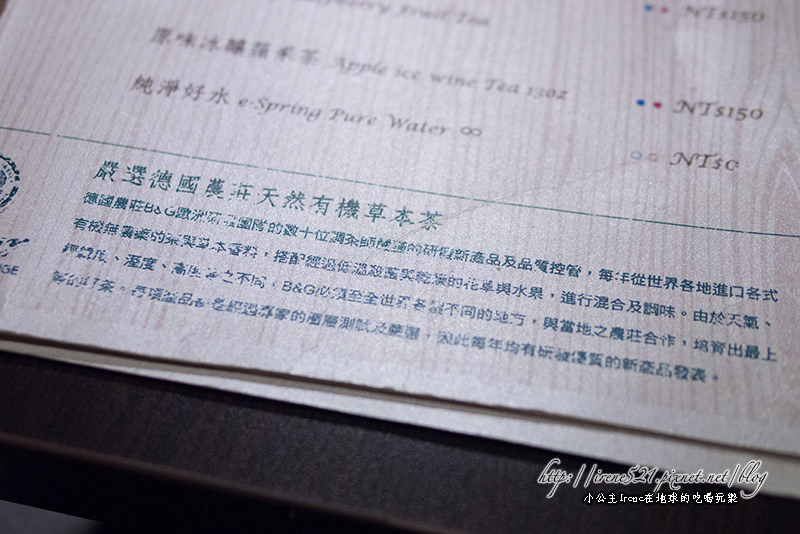 Fruit Tea NT$150
原味冰釀蘋果茶 Apple ice wine Tea 1302 NT$150
純淨好水 e-Spring Pure Water ∞ NT$0
嚴選德國農莊天然有機草本茶
德國農莊B&G歐洲研發團隊的數十位調茶師嚴謹的研發新產品及品質控管，每年從世界各地進口各式
有機無農藥的茶與草本香料，搭配經過低溫殺菌與乾燥的花草與水果，進行混合及調味。由於天氣、
經緯度、溼度、高度等之不同，B&G必須至全世界各個不同的地方，與當地之農莊合作，培育出最上
等的好茶。每項產品都是經過專家的層層測試及篩選，因此每年均有研發優質的新產品發表。
http://irene521.pixnet.net/blog
小公主Irene在地球的吃喝玩樂